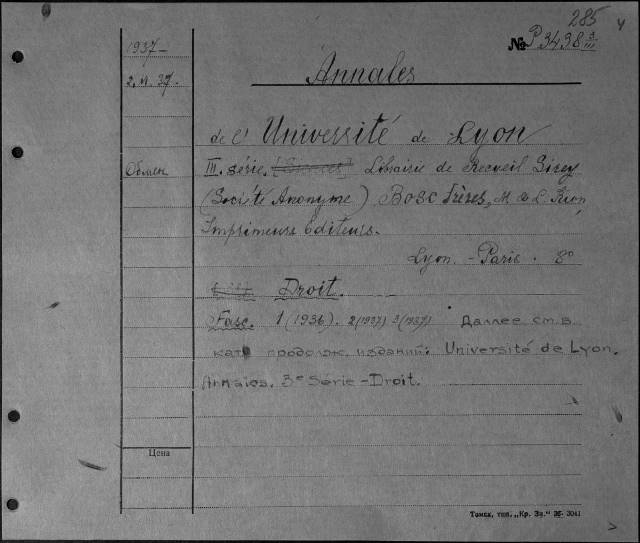 285 4
№ P3438 3/III
1937 –
2.VI.37.
Annales
de l'Université de Lyon
Обмен
III. série. Librairie de Recueil Sirey
(Société Anonyme) Bosc Frères, M & L. Riou
Imprimeurs Editeurs.
Lyon. – Paris. 8°
Droit.
Fasc. 1 (1936). 2(1937) 3(1937) Даллее см. в
кат продолж. изданий: Université de Lyon.
Annales. 3e Série – Droit.
Цена
Томск, тип. „Кр. Зн." 3041